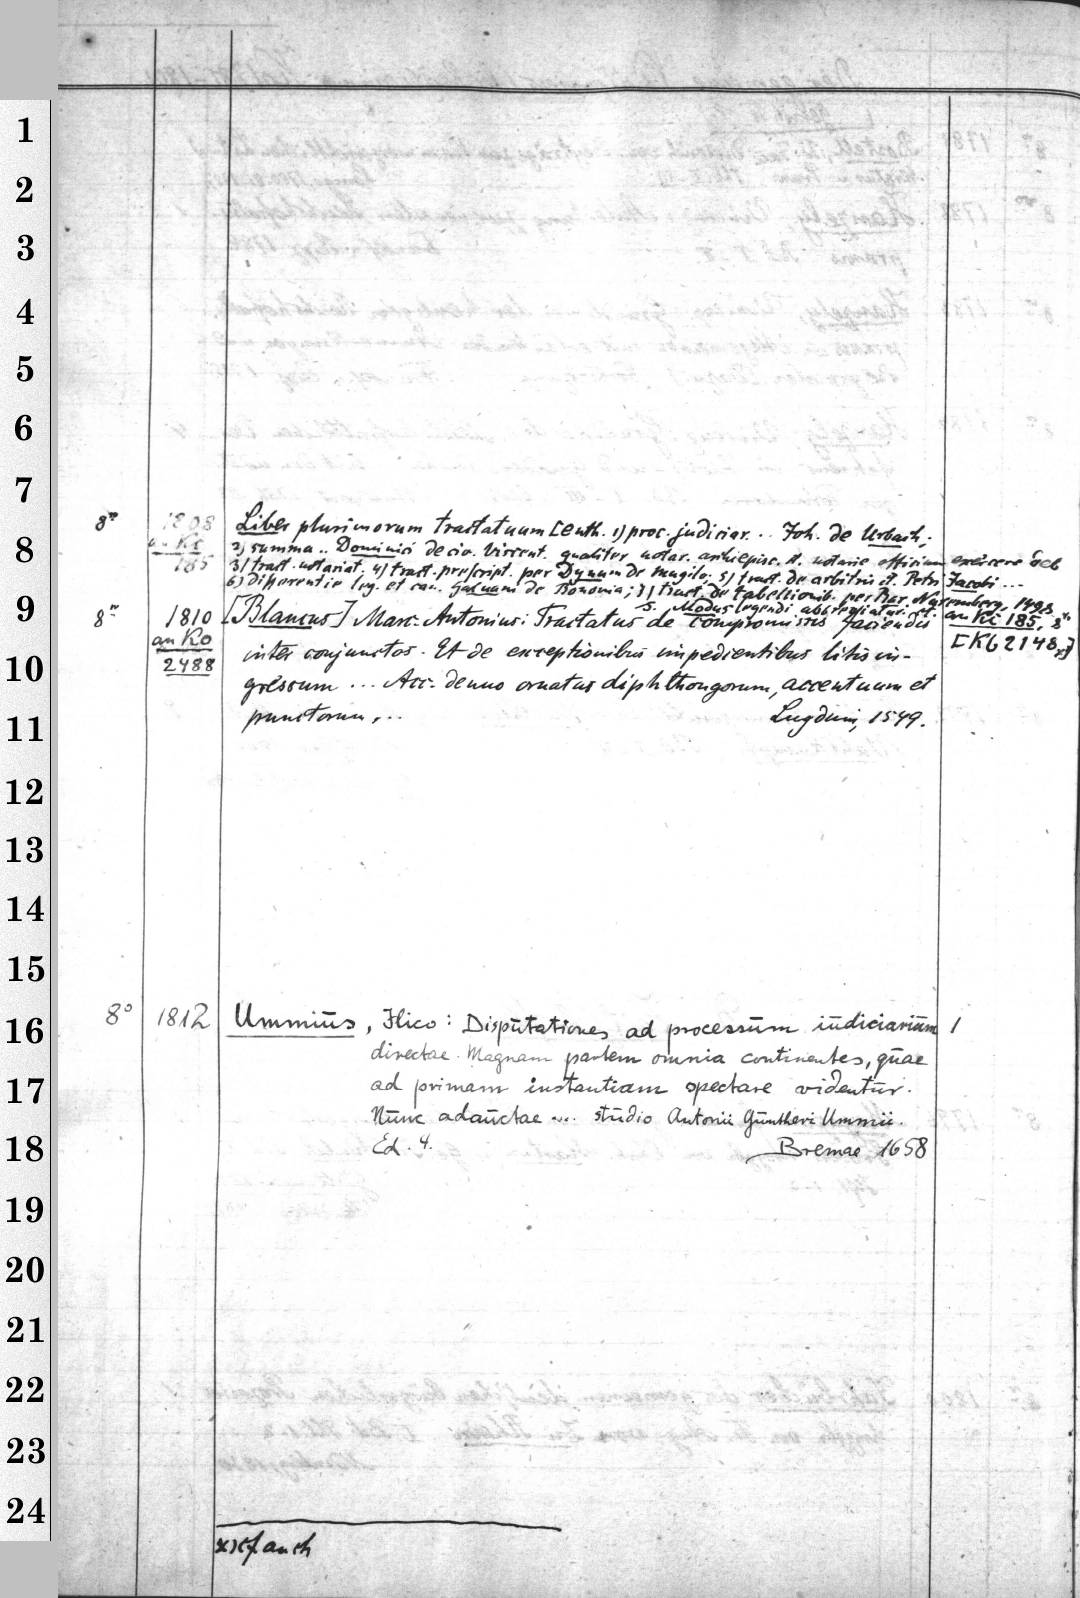 1
2
3
4
5
6
7
8o 1808 Liber plurimorum tractatuum [enth. 1) proc. judiciar... Joh. de Urbach;
8 an Kc 2) summa .. Dominici de civ. Vincent. qualiter notar. archiepisc. notarie officium exercere deb
185 3) tract. notariat. 4) tract. prescript. per Dynum de Mugilo; 5) tract. de arbitris Petri Jacobi ...
6) differentie leg. et can. Galuani de Bononia; 7) tract. de tabellionib. per Bar. Nuremberg, 1493
8. Modus legendi abbreviatur. et. an Kc 185, 8o
9 8o 1810 [Blancus] Marc. Antonius: Tractatus de compromissis faciendis
an Ko inter conjunctos. Et de exceptionibus impedientibus litis in- [K6 2148,x]
10 2488
gressum ... Acc. denuo ornatus diphthongorum, accentuum et
11 punctorum, .. Lugduni, 1549.
12
13
14
15
16 8o 1812 Ummius, Ilico: Disputationes ad processum iudiciarium 1
directae. Magnam partem omnia continentes, quae
17 ad primam instantiam spectare videntur.
Nunc adauctae ... studio Antonii Guntheri Ummii.
18 Ed. 4. Bremae 1658
19
20
21
22
23
24
x) cf. auch